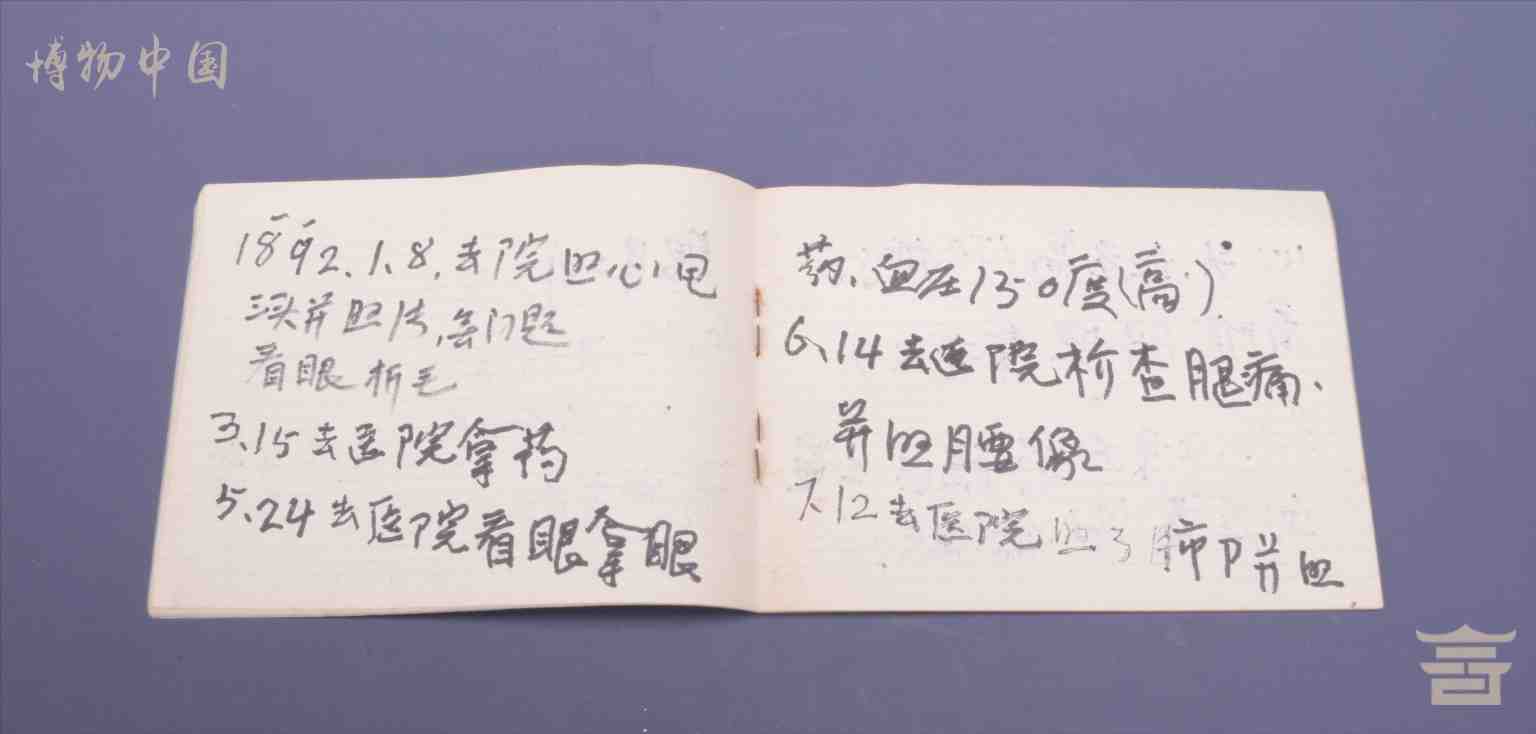 博物中国
1892.1.8.去院照心电
头并照片,无问题
看眼
3.15去医院拿药
5.24去医院看眼拿眼
药、血压150度(高)
6.14去医院检查腿痛、
并照腰像
7.12去医院照了肺 并照